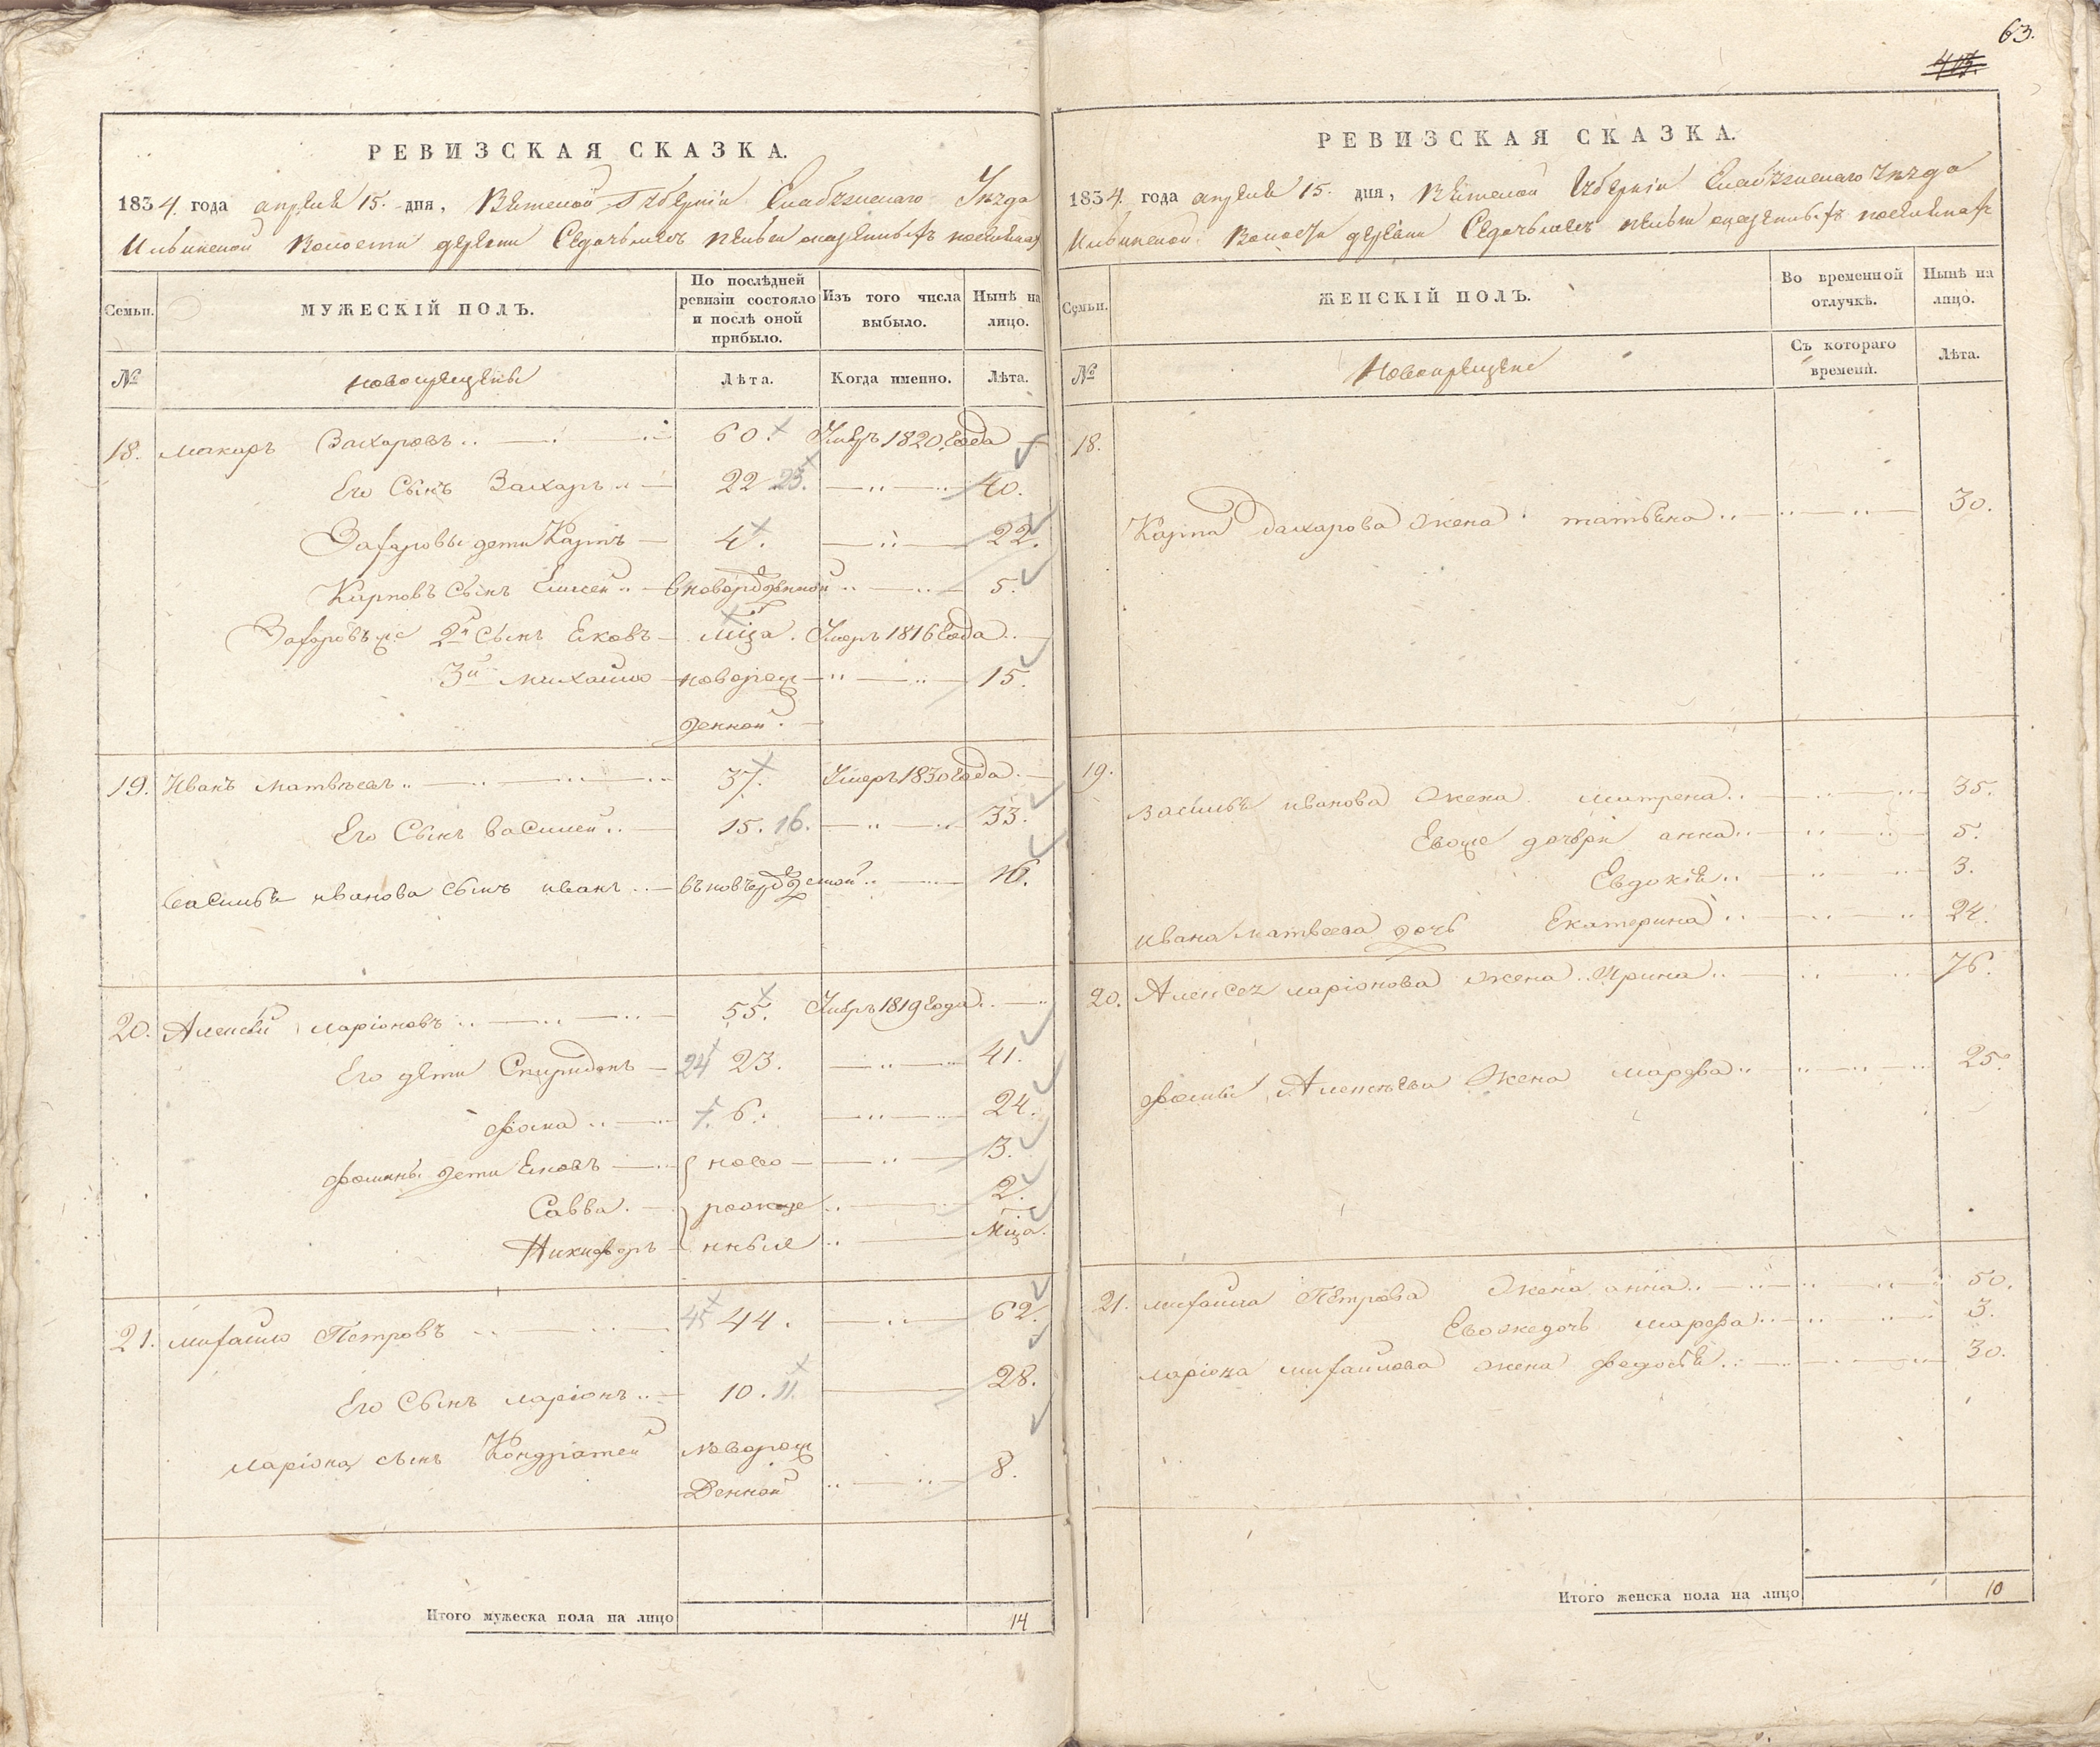 63.
РЕВИЗСКАЯ СКАЗКА.
1834. года апреля 15. дня, Вятской Губерніи Елабужскаго Уѣзда
Ильинской Волости деревни
Семьи.
МУЖЕСКІЙ ПОЛЪ.
По послѣдней ревизіи состояло и послѣ оной прибыло.
Изъ того числа выбыло.
Нынѣ на лицо.
№
новокрещены
Лѣта.
Когда именно.
Лѣта.
18. Макаръ Захаровъ 60. Умеръ 1820 года
Его Сынъ Захаръ 22 23. 40.
Захаровы дети Карпъ 4. 22.
Карповъ сынъ Елисей новорожденной 5.
Захаровъ же 2й сынъ Яковъ мца. Умеръ 1816 года
3й михайло новорож 15.
денной.
19. Иванъ Матвѣевъ 37. Умеръ 1830 года
Его Сынъ василей 15. 16. 33.
василья иванова сынъ иванъ 16.
20. Алексѣй ларіоновъ 55. Умеръ 1819 года
Его дети Спиридонъ 24 23. 41.
фома 7. 6. 24.
фомины дети Яковъ ново 3.
Савва рожде 2.
Никифоръ нные мца.
21. михайло Петровъ 45 44. 62.
Его Сынъ ларіонъ 10. 11. 28.
ларіона сынъ Кондратей новорож
денной 8.
Итого мужеска пола на лицо 14
РЕВИЗСКАЯ СКАЗКА.
1834. года апреля 15. дня, Вятской Губерніи Елабужскаго Уѣзда
Ильинской Волости деревни
Семьи.
ЖЕНСКІЙ ПОЛЪ.
Во временной отлучкѣ.
Нынѣ на лицо.
№
Новокрещены
Съ котораго времени.
Лѣта.
18.
Карпа Захарова жена татьяна 30.
19.
василья иванова жена матрена 35.
Евоже дочери анна 5.
Евдокія 3.
ивана матвеева дочь Екатерина 24.
20. Алексея ларіонова жена Ирина 76.
фомы Алексѣева жена марфа 25.
21. михайла Петрова жена анна 50.
Евоже дочь марфа 3.
ларіона михайлова жена федосья 30.
Итого женска пола на лицо 10